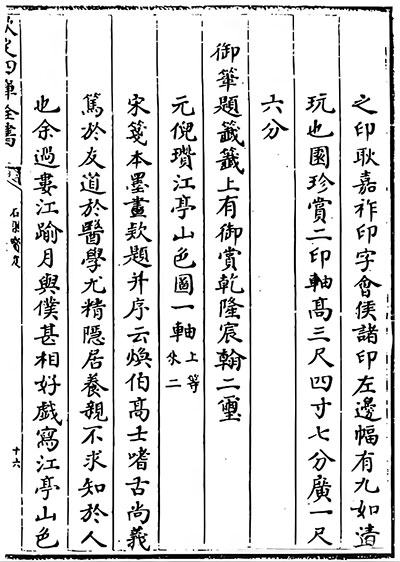 之印耿嘉祚印字會侯諸印左邊幅有九如清
玩也園珍賞二印軸高三尺四寸七分廣一尺
六分
御筆題籤籤上有御賞乾隆宸翰二璽
元倪瓚江亭山色圖一軸上等來二
宋箋本墨畫欵題并序云煥伯高士嗜古尚義
篤於友道於醫學尤精隱居養親不求知於人
也余過婁江踰月與僕甚相好戲寫江亭山色
欽定四庫全書
十六